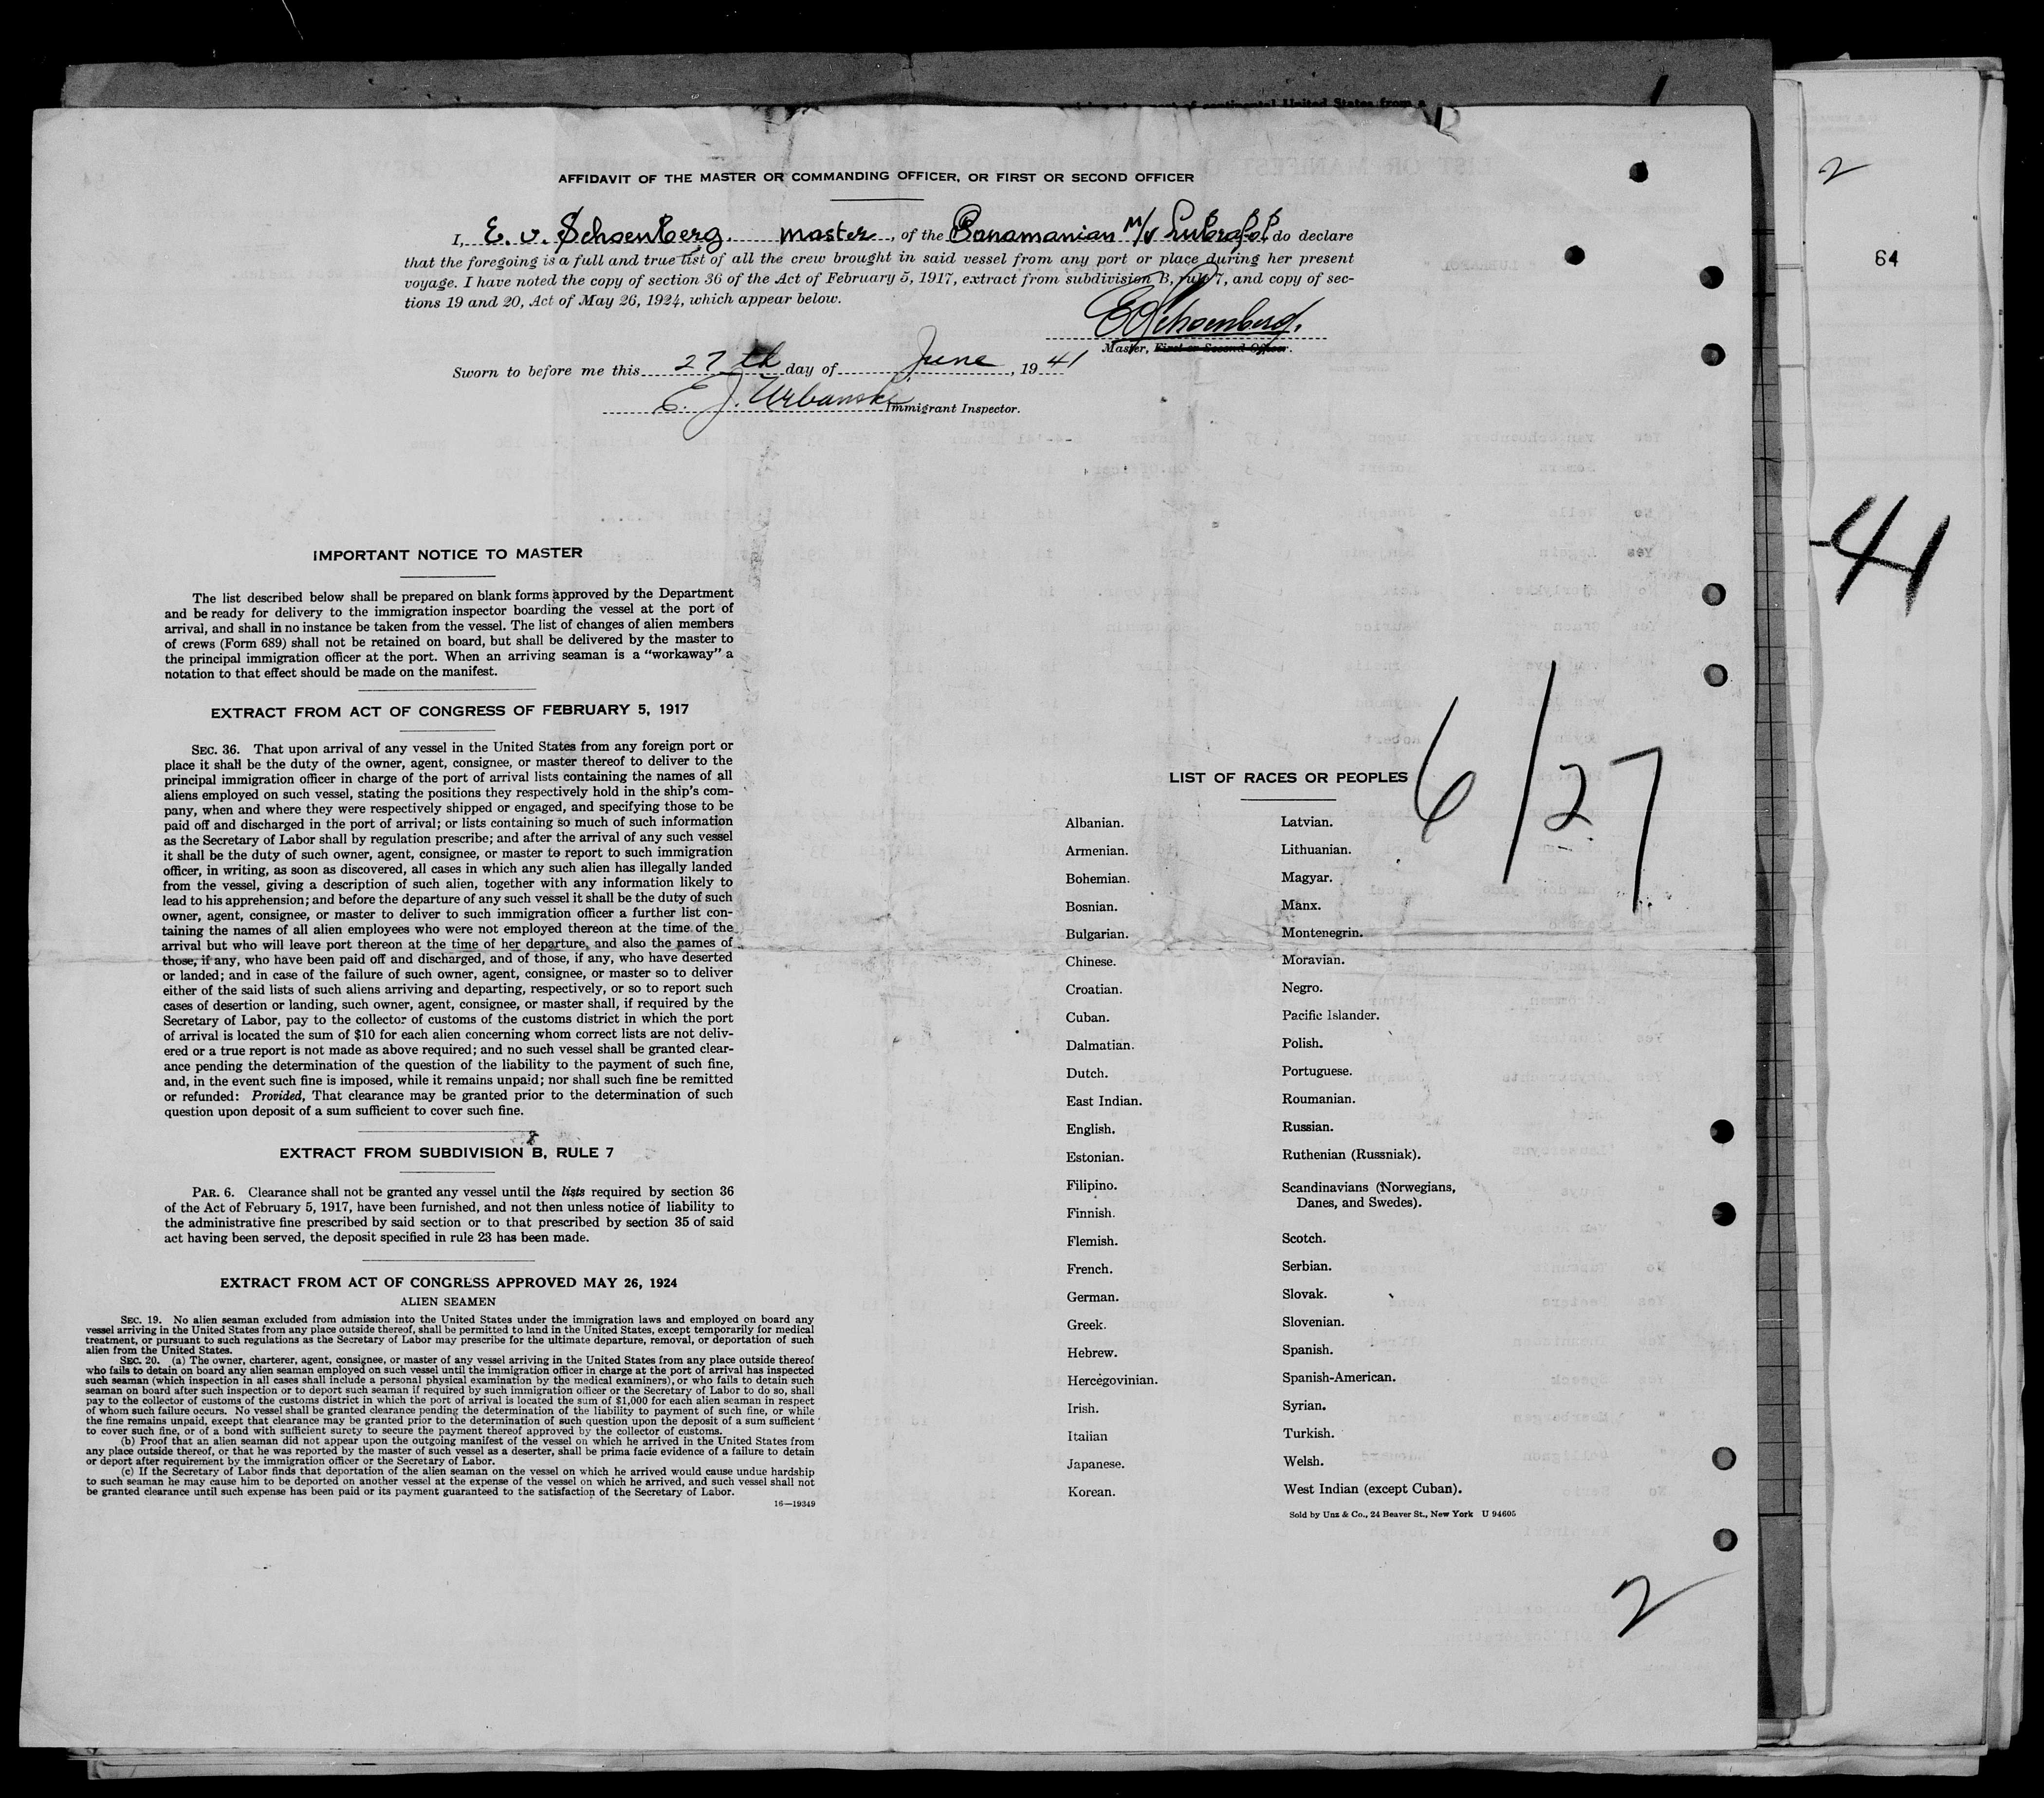 AFFIDAVIT OF THE MASTER OR COMMANDING OFFICER, OR FIRST OR SECOND OFFICER
I, E. v. Schoenberg. master, of the Panamanian M/V Lubrafol, do declare
that the foregoing is a full and true list of all the crew brought in said vessel from any port or place during her present
voyage. I have noted the copy of section 36 of the Act of February 5, 1917, extract from subdivision B, rule 7, and copy of sec-
tions 19 and 20, Act of May 26, 1924, which appear below.
Master, First or Second Officer.
Sworn to before me this 27th day of June, 1941
E. J. Urbanski Immigrant Inspector.
IMPORTANT NOTICE TO MASTER
The list described below shall be prepared on blank forms approved by the Department
and be ready for delivery to the immigration inspector boarding the vessel at the port of
arrival, and shall in no instance be taken from the vessel. The list of changes of alien members
of crews (Form 689) shall not be retained on board, but shall be delivered by the master to
the principal immigration officer at the port. When an arriving seaman is a "workaway" a
notation to that effect should be made on the manifest.
EXTRACT FROM ACT OF CONGRESS OF FEBRUARY 5, 1917
SEC. 36. That upon arrival of any vessel in the United States from any foreign port or
place it shall be the duty of the owner, agent, consignee, or master thereof to deliver to the
principal immigration officer in charge of the port of arrival lists containing the names of all
aliens employed on such vessel, stating the positions they respectively hold in the ship's com-
pany, when and where they were respectively shipped or engaged, and specifying those to be
paid off and discharged in the port of arrival; or lists containing so much of such information
as the Secretary of Labor shall by regulation prescribe; and after the arrival of any such vessel
it shall be the duty of such owner, agent, consignee, or master to report to such immigration
officer, in writing, as soon as discovered, all cases in which any such alien has illegally landed
from the vessel, giving a description of such alien, together with any information likely to
lead to his apprehension; and before the departure of any such vessel it shall be the duty of such
owner, agent, consignee, or master to deliver to such immigration officer a further list con-
taining the names of all alien employees who were not employed thereon at the time of the
arrival but who will leave port thereon at the time of her departure, and also the names of
those, if any, who have been paid off and discharged, and of those, if any, who have deserted
or landed; and in case of the failure of such owner, agent, consignee, or master so to deliver
either of the said lists of such aliens arriving and departing, respectively, or so to report such
cases of desertion or landing, such owner, agent, consignee, or master shall, if required by the
Secretary of Labor, pay to the collector of customs of the customs district in which the port
of arrival is located the sum of $10 for each alien concerning whom correct lists are not deliv-
ered or a true report is not made as above required; and no such vessel shall be granted clear-
ance pending the determination of the question of the liability to the payment of such fine,
and, in the event such fine is imposed, while it remains unpaid; nor shall such fine be remitted
or refunded: Provided, That clearance may be granted prior to the determination of such
question upon deposit of a sum sufficient to cover such fine.
EXTRACT FROM SUBDIVISION B, RULE 7
PAR. 6. Clearance shall not be granted any vessel until the lists required by section 36
of the Act of February 5, 1917, have been furnished, and not then unless notice of liability to
the administrative fine prescribed by said section or to that prescribed by section 35 of said
act having been served, the deposit specified in rule 23 has been made.
EXTRACT FROM ACT OF CONGRESS APPROVED MAY 26, 1924
ALIEN SEAMEN
SEC. 19. No alien seaman excluded from admission into the United States under the immigration laws and employed on board any
vessel arriving in the United States from any place outside thereof, shall be permitted to land in the United States, except temporarily for medical
treatment, or pursuant to such regulations as the Secretary of Labor may prescribe for the ultimate departure, removal, or deportation of such
alien from the United States.
SEC. 20. (a) The owner, charterer, agent, consignee, or master of any vessel arriving in the United States from any place outside thereof
who fails to detain on board any alien seaman employed on such vessel until the immigration officer in charge at the port of arrival has inspected
such seaman (which inspection in all cases shall include a personal physical examination by the medical examiners), or who fails to detain such
seaman on board after such inspection or to deport such seaman if required by such immigration officer or the Secretary of Labor to do so, shall
pay to the collector of customs of the customs district in which the port of arrival is located the sum of $1,000 for each alien seaman in respect
of whom such failure occurs. No vessel shall be granted clearance pending the determination of the liability to payment of such fine, or while
the fine remains unpaid, except that clearance may be granted prior to the determination of such question upon the deposit of a sum sufficient
to cover such fine, or of a bond with sufficient surety to secure the payment thereof approved by the collector of customs.
(b) Proof that an alien seaman did not appear upon the outgoing manifest of the vessel on which he arrived in the United States from
any place outside thereof, or that he was reported by the master of such vessel as a deserter, shall be prima facie evidence of a failure to detain
or deport after requirement by the immigration officer or the Secretary of Labor.
(c) If the Secretary of Labor finds that deportation of the alien seaman on the vessel on which he arrived would cause undue hardship
to such seaman he may cause him to be deported on another vessel at the expense of the vessel on which he arrived, and such vessel shall not
be granted clearance until such expense has been paid or its payment guaranteed to the satisfaction of the Secretary of Labor.
16—19349
LIST OF RACES OR PEOPLES
Albanian.
Armenian.
Bohemian.
Bosnian.
Bulgarian.
Chinese.
Croatian.
Cuban.
Dalmatian.
Dutch.
East Indian.
English.
Estonian.
Filipino.
Finnish.
Flemish.
French.
German.
Greek.
Hebrew.
Hercegovinian.
Irish.
Italian
Japanese.
Korean.
Latvian.
Lithuanian.
Magyar.
Manx.
Montenegrin.
Moravian.
Negro.
Pacific Islander.
Polish.
Portuguese.
Roumanian.
Russian.
Ruthenian (Russniak).
Scandinavians (Norwegians,
Danes, and Swedes).
Scotch.
Serbian.
Slovak.
Slovenian.
Spanish.
Spanish-American.
Syrian.
Turkish.
Welsh.
West Indian (except Cuban).
Sold by Unz & Co., 24 Beaver St., New York U 94605
6/27
2
2
64
41